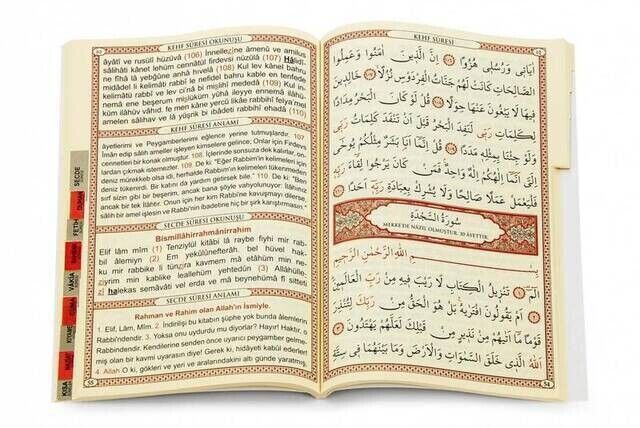 KEHF SÛRESİ OKUNUŞU
âyâtî ve rusulî hüzüvâ (106) İnnellezine âmenû ve amilus
sâlihâti kânet lehüm cennâtül firdevsi nüzülâ (107) Hâlidî-
ne fîhâ lâ yebğûne anhâ hıvelâ (108) Kul lev kânel bahru
midâdel li kelimâti rabbî le nefidel bahru kable en tenfede
kelimâtü rabbî ve lev ci'nâ bi mislihî mededâ (109) Kul in-
nemâ ene beşerum mislüküm yûhâ ileyye ennemâ ilâhü-
küm ilâhüv vâhid, fe men kâne yercû likâe rabbihî felya'mel
amelen sâlihav ve lâ yüşrik bi ıbâdeti rabbihî ehadâ (110)
KEHF SÛRESİ ANLAMI
âyetlerimi ve Peygamberlerimi eğlence yerine tutmuşlardır. 107
İman edip salih ameller işleyen kimselere gelince; Onlar için Firdevs
cennetleri bir konak olmuştur. 108. İçlerinde sonsuza dek kalırlar, on-
lardan çıkmak istemezler. 109. De ki: "Eğer Rabbim'in kelimeleri için
deniz mürekkeb olsa idi, herhalde Rabbim'in kelimeleri tükenmeden
deniz tükenirdi. Bir katını da yardım getirsek bile." 110. De ki: "Ben
sırf sizin gibi bir beşerim, ancak bana şöyle vahyolunuyor: İlâhınız
ancak bir tek İlâhtır. Onun için her kim Rabbi'ne kavuşmayı dilerse,
salih bir amel işlesin ve Rabbinin ibadetine hiç bir şirk karıştırmasın."
SECDE SÛRESİ OKUNUŞU
Bismillâhirrahmânirrahîm
Elif lâm mîm (1) Tenzîylül kitâbi lâ raybe fîyhi mir rab-
bil âlemiyn (2) Em yekûlûnefterâh, bel hüvel hak-
ku mir rabbike li tünzira kavmem mâ etâhüm min ne-
ziyrim min kablike leallehüm yehtedûn (3) Allâhülle-
zî halekas semâvâti vel erda ve mâ beynehümâ fî sitteti
SECDE SÛRESİ ANLAMI
Rahman ve Rahim olan Allah'ın İsmiyle.
1. Elif, Lâm, Mîm. 2. İndirilişi bu kitabın şüphe yok bunda âlemlerin
Rabbi'ndendir. 3. Yoksa onu uydurdu mu diyorlar? Hayır! Haktır, o
Rabbi'ndendir. Kendilerine senden önce uyarıcı peygamber gelme-
miş olan bir kavmi uyarasın diye! Gerek ki, hidâyeti kabûl ederler!
4. Allah O ki, gökleri ve yeri ve aralarındakini altı günde yaratmış,
SECDE
DUHAN
FETİH
VÂKIA
KIYAME
KISA
KEHF SÛRESİ
اٰيَاتٖي وَرُسُلٖي هُزُوًا ﴿١٠٦﴾ اِنَّ الَّذٖينَ اٰمَنُوا وَعَمِلُوا
الصَّالِحَاتِ كَانَتْ لَهُمْ جَنَّاتُ الْفِرْدَوْسِ نُزُلًا ﴿١٠٧﴾ خَالِدٖينَ
فٖيهَا لَا يَبْغُونَ عَنْهَا حِوَلًا ﴿١٠٨﴾ قُلْ لَوْ كَانَ الْبَحْرُ مِدَادًا
لِكَلِمَاتِ رَبّٖي لَنَفِدَ الْبَحْرُ قَبْلَ اَنْ تَنْفَدَ كَلِمَاتُ رَبّٖي
وَلَوْ جِئْنَا بِمِثْلِهٖ مَدَدًا ﴿١٠٩﴾ قُلْ اِنَّمَا اَنَا بَشَرٌ مِثْلُكُمْ يُوحٰى
اِلَيَّ اَنَّمَا اِلٰهُكُمْ اِلٰهٌ وَاحِدٌ فَمَنْ كَانَ يَرْجُوا لِقَاءَ
رَبِّهٖ فَلْيَعْمَلْ عَمَلًا صَالِحًا وَلَا يُشْرِكْ بِعِبَادَةِ رَبِّهٖ اَحَدًا ﴿١١٠﴾
سُورَةُ السَّجْدَةِ
MEKKE'DE NÂZİL OLMUŞTUR. 30 ÂYETTİR.
بِسْمِ اللّٰهِ الرَّحْمٰنِ الرَّحٖيمِ
الٓمٓ ﴿١﴾ تَنْزٖيلُ الْكِتَابِ لَا رَيْبَ فٖيهِ مِنْ رَبِّ الْعَالَمٖينَ
﴿٢﴾ اَمْ يَقُولُونَ افْتَرٰيهُ بَلْ هُوَ الْحَقُّ مِنْ رَبِّكَ لِتُنْذِرَ
قَوْمًا مَا اَتٰيهُمْ مِنْ نَذٖيرٍ مِنْ قَبْلِكَ لَعَلَّهُمْ يَهْتَدُونَ ﴿٣﴾
اَللّٰهُ الَّذٖي خَلَقَ السَّمٰوَاتِ وَالْاَرْضَ وَمَا بَيْنَهُمَا فٖي سِتَّةِ
54